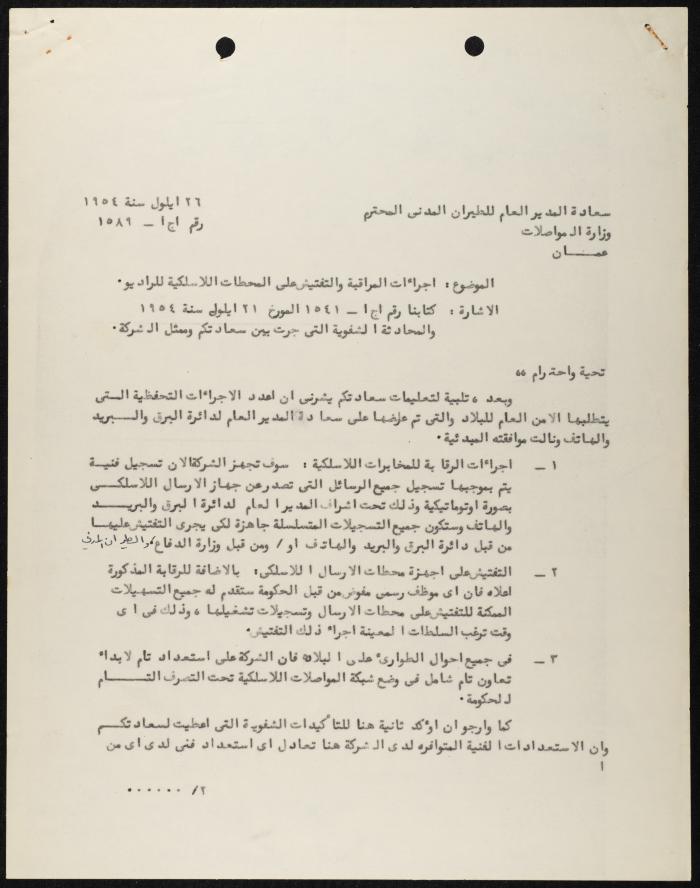 ٢٦ ايلول سنة ١٩٥٤
رقم اج ا — ١٥٨٩
سعادة المدير العام للطيران المدنى المحترم
وزارة المواصلات
عمــان
الموضوع : اجراءات المراقبة والتفتيش على المحطات اللاسلكية للراديو.
الاشارة : كتابنا رقم اج ا — ١٥٤١ المورخ ٢١ ايلول سنة ١٩٥٤
والمحادثة الشفوية التى جرت بين سعادتكم وممثل الشركة.
تحية واحترام ،،
وبعد ، تلبية لتعليمات سعادتكم يشرنى ان اعدد الاجراءات التحفظية الـتى
يتطلبها الامن العام للبلاد والتى تم عرضها على سعادة المدير العام لدائرة البرق والـــبريد
والهاتف ونالت موافقته المبدئية.
١ — اجراءات الرقابة للمخابرات اللاسلكية : سوف تجهز الشركة الان تسجيل فنيـة
يتم بموجبها تسجيل جميع الرسائل التى تصدر عن جهاز الارسال اللاسلكـــى
بصورة اوتوماتيكية وذلك تحت اشراف المدير العام لدائرة البرق والبريـــد
والهاتف وستكون جميع التسجيلات المتسلسلة جاهزة لكى يجرى التفتيش عليهـا
من قبل دائرة البرق والبريد والهاتف او / ومن قبل وزارة الدفاع، والطيران المدني
٢ — التفتيش على اجهزة محطات الارسال اللاسلكى: بالاضافة للرقابة المذكورة
اعلاه فان اى موظف رسمى مفوض من قبل الحكومة ستقدم له جميع التسهيلات
الممكنة للتفتيش على محطات الارسال وتسجيلات تشغيلها ، وذلك فى اى
وقت ترغب السلطات المعينة اجراء ذلك التفتيش.
٣ — فى جميع احوال الطوارئ على البلاد فان الشركة على استعداد تام لابداء
تعاون تام شامل فى وضع شبكة المواصلات اللاسلكية تحت التصرف التــــام
للحكومة.
كما وارجو ان اوكد ثانية هنا للتأكيدات الشفوية التى اعطيت لسعادتكـــم
وان الاستعدادات الفنية المتوافره لدى الشركة هنا تعادل اى استعداد فنى لدى اى من
ا
٢/ ......